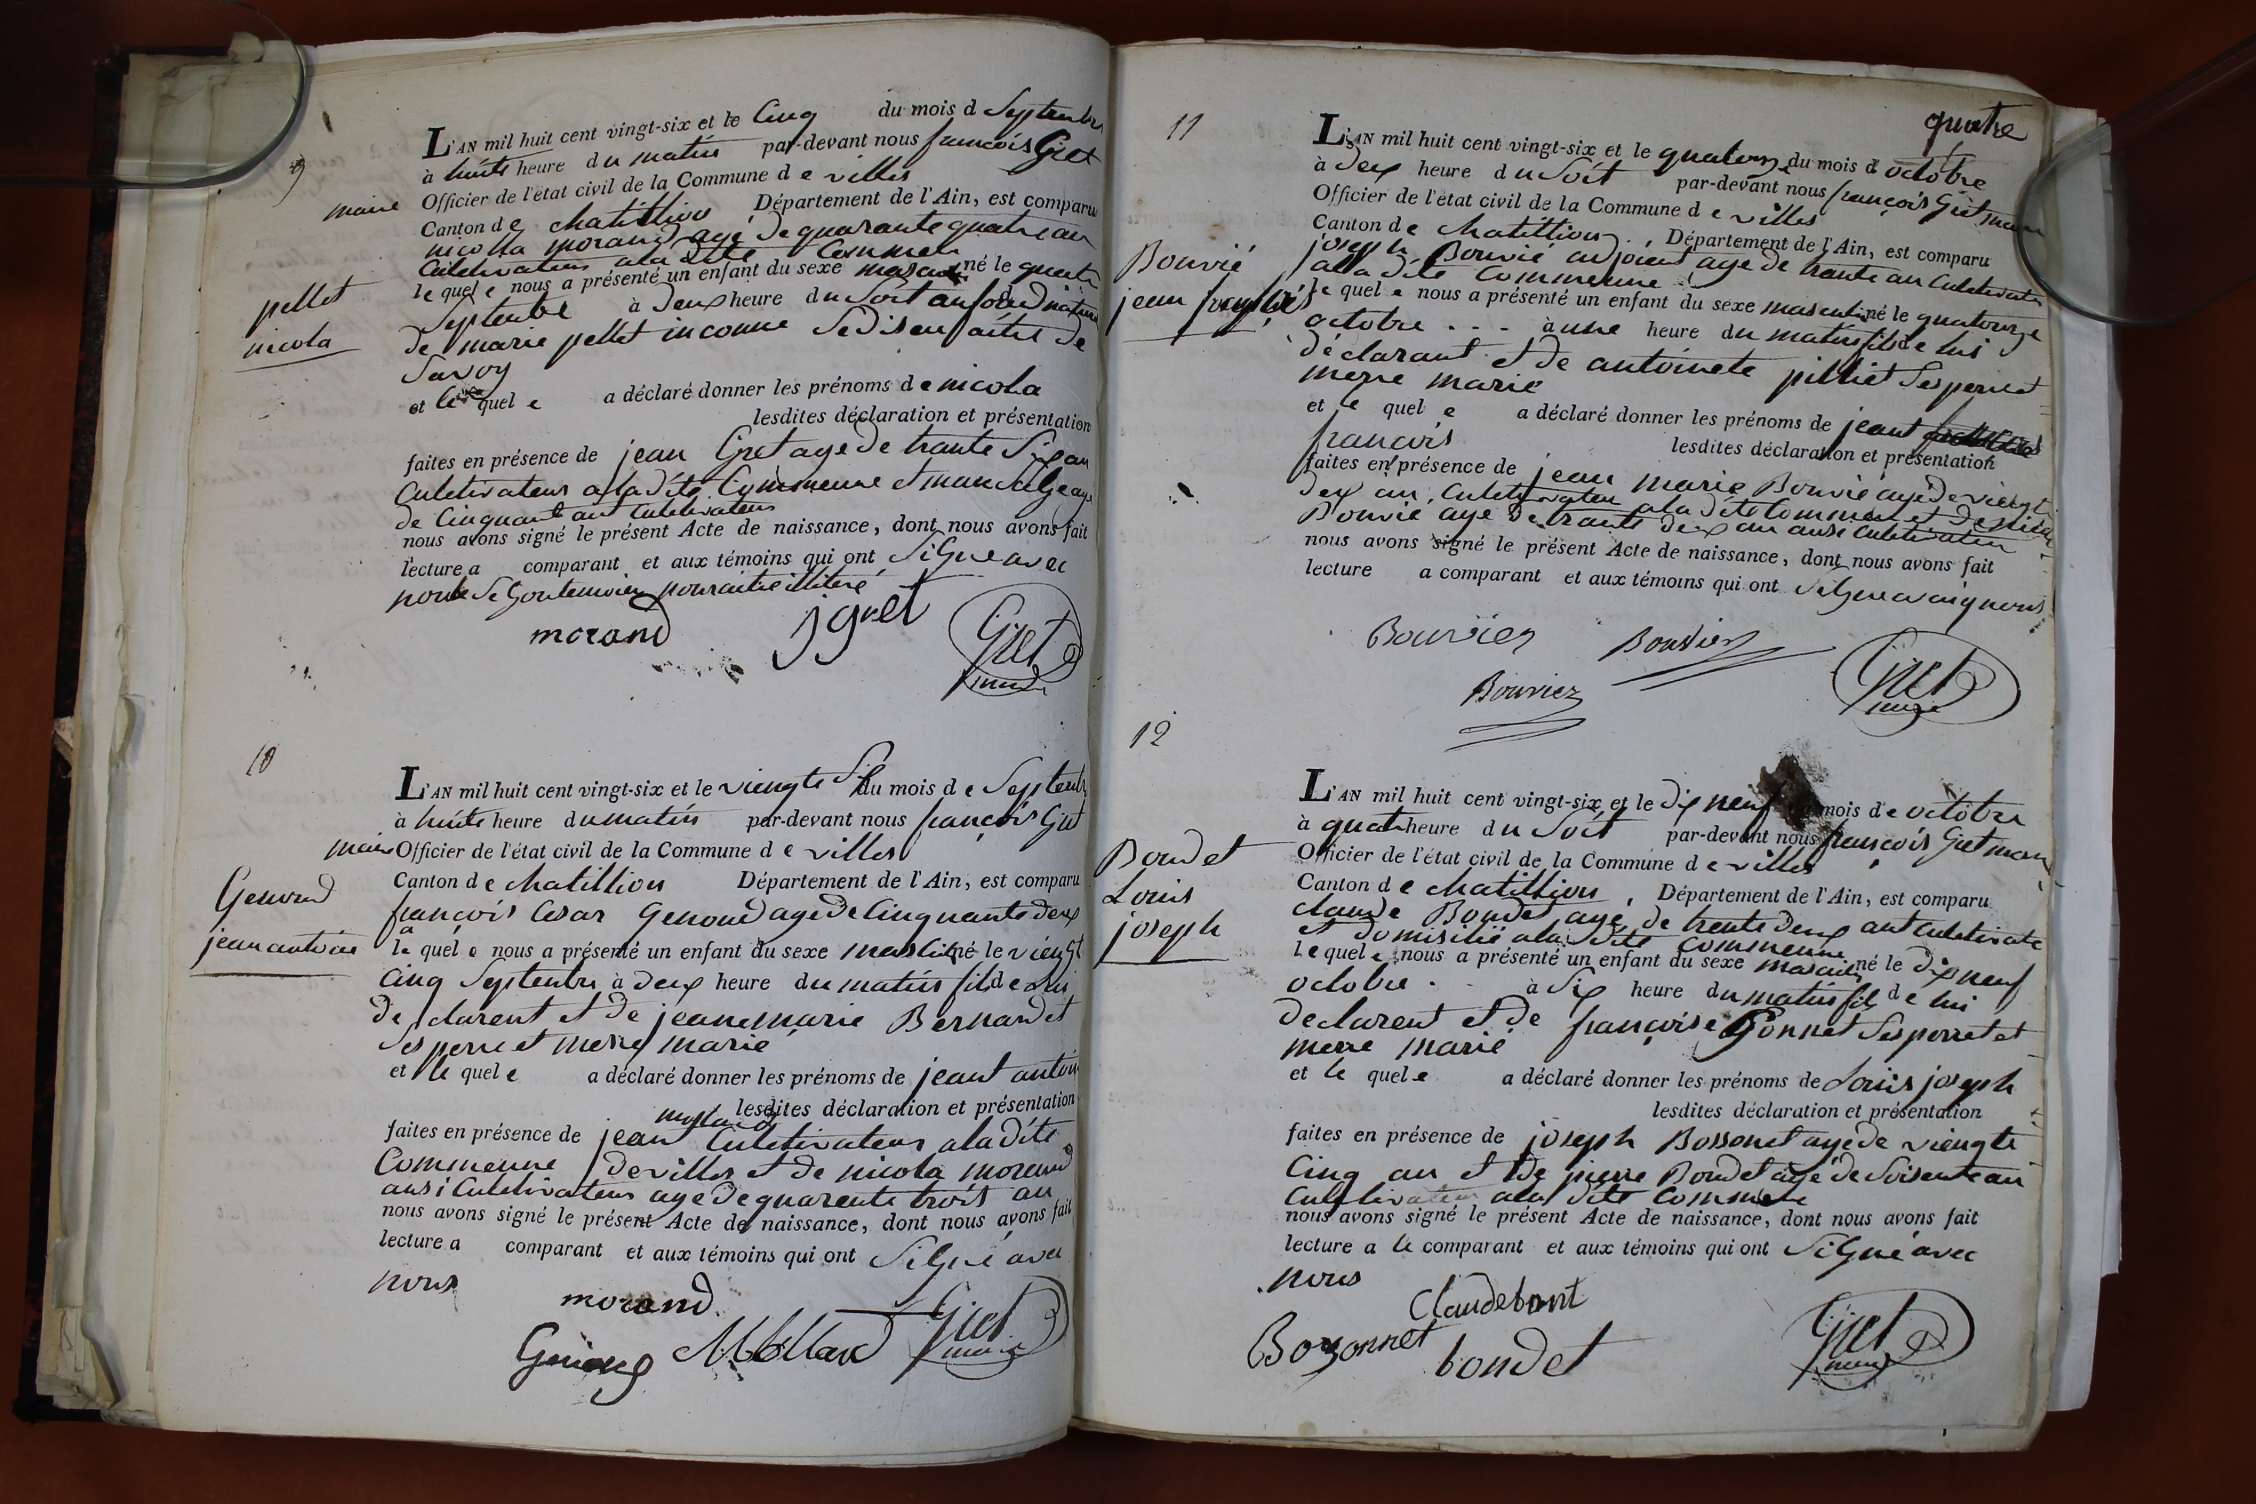 9
L'AN mil huit cent vingt-six et le Cinq du mois d Septembre
à huite heure du matin par-devant nous françois Gret
maire Officier de l'état civil de la Commune de villes
Canton de chatillion Département de l'Ain, est comparu
nicolla morand agé de quarante quatre an
Culetivateur a la dite Commen
le quel e nous a présenté un enfant du sexe né le
pellet
nicola
Septenbre à deux heure du Soit
de marie pellet inconnue Se disen de
Savoy
et le quel e a déclaré donner les prénoms de nicola
lesdites déclaration et présentation
faites en présence de jean Gret age de trante Six an
Culetivateur a la dite Commenne et
de Cinquant ant Culetivateur
nous avons signé le présent Acte de naissance, dont nous avons fait
lecture a comparant et aux témoins qui ont Signe avec
morand jgret Gret
maire
10
L'AN mil huit cent vingt-six et le viengte Six du mois de Septenbr
à huite heure du matin par-devant nous françois Gret
maire Officier de l'état civil de la Commune de villes
Canton de chatillion Département de l'Ain, est comparu
Genoud
jean antoine
françois Cesar Genoud age de Cinquante deux
a
le quel e nous a présenté un enfant du sexe né le viengt
Cinq Septenbre à deux heure du matin fils de Lui
de clarent et de jeanemarie Bernardet
Ses perre et merre marié
et le quel e a déclaré donner les prénoms de jeant antoin
lesdites déclaration et présentation
faites en présence de jean Culetivateur a la dite
Commenne de villes et de nicola morand
ausi Culetivateur age de quarente trois an
nous avons signé le présent Acte de naissance, dont nous avons fait
lecture a comparant et aux témoins qui ont Signé avec
nous
morand
Genoud Gret
maire
quatre
11
L'AN mil huit cent vingt-six et le quatorze du mois d octobre
à deux heure du Soit par-devant nous françois Gret maire
Officier de l'état civil de la Commune de villes
Canton de chatillion Département de l'Ain, est comparu
Bouvié
jean
joseph Bouvié adjoient age de trante an Culetivateur
a la dite Commenne
le quel e nous a présenté un enfant du sexe masculin né le quatourze
octobre . . . à une heure du matin fils de lui
déclarant et de antoinete pilliet Ses perre et
merre marié
et le quel e a déclaré donner les prénoms de jeant
françois lesdites déclaration et présentation
faites en présence de jean marie Bouvié agé de viengt
deux an Culetivateu a la dite Commen et de
Bouvié age de trante deux an ausi Culetivateu
nous avons signé le présent Acte de naissance, dont nous avons fait
lecture a comparant et aux témoins qui ont
Bouvier Bouvier
Bouvier Gret
maire
12
L'AN mil huit cent vingt-six et le dix neuf du mois de octobre
à quatr heure du Soit par-devant nous françois Gret maire
Officier de l'état civil de la Commune de villes
Canton de chatillion, Département de l'Ain, est comparu
Boudet
Louis
joseph
claude Boudet agé de trente deux ant Culetivate
et domisilié a la dite Commenne
le quel e nous a présenté un enfant du sexe masculin né le dix neuf
octobre . . à Six heure du matin fils de lui
declarent et de françoise Gonnet Ses perret et
merre marié
et le quel e a déclaré donner les prénoms de Louis joseph
lesdites déclaration et présentation
faites en présence de joseph Bossonet agé de viengte
Cinq an et de pierre Boudet agé de Soisente an
Culetivateur a la dite Commene
nous avons signé le présent Acte de naissance, dont nous avons fait
lecture a le comparant et aux témoins qui ont Signé avec
nous
Bozonnet boudet Gret
maire